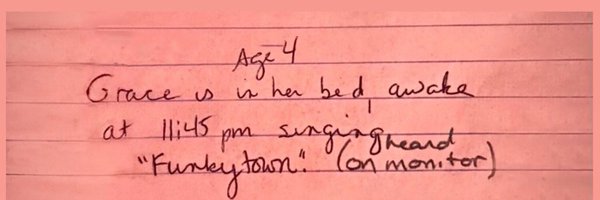 Age 4
Grace is in her bed, awake
at 11:45 pm singing heard
"Funkytown". (on monitor)